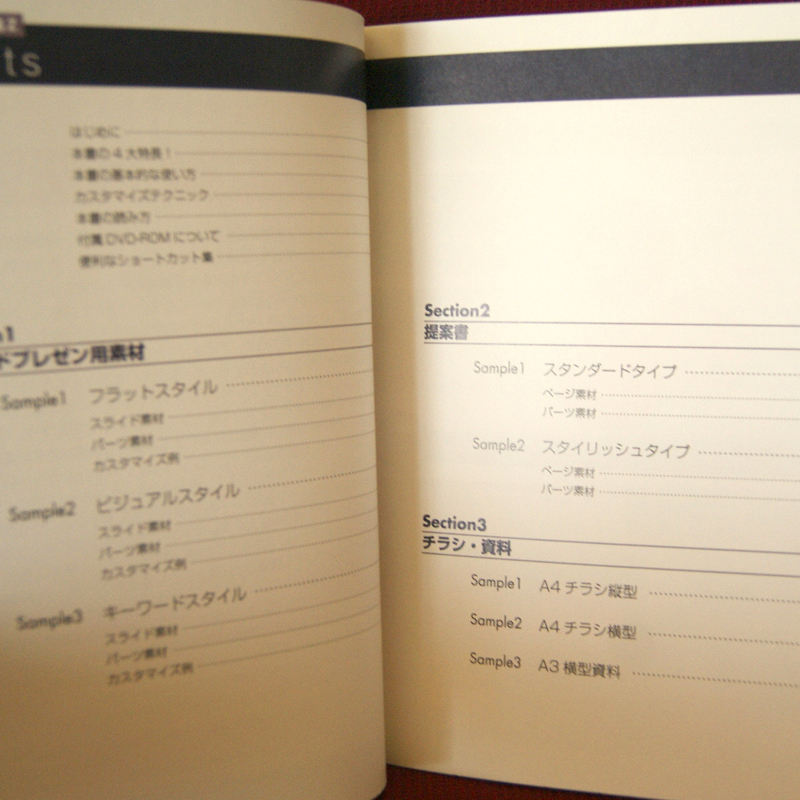 ts
はじめに
本書の4大特長！
本書の基本的な使い方
カスタマイズテクニック
本書の読み方
付属DVD-ROMについて
便利なショートカット集
n1
ドプレゼン用素材
Sample1 フラットスタイル
スライド素材
パーツ素材
カスタマイズ例
Sample2 ビジュアルスタイル
スライド素材
パーツ素材
カスタマイズ例
Sample3 キーワードスタイル
スライド素材
パーツ素材
カスタマイズ例
Section2
提案書
Sample1 スタンダードタイプ
ページ素材
パーツ素材
Sample2 スタイリッシュタイプ
ページ素材
パーツ素材
Section3
チラシ・資料
Sample1 A4チラシ縦型
Sample2 A4チラシ横型
Sample3 A3横型資料